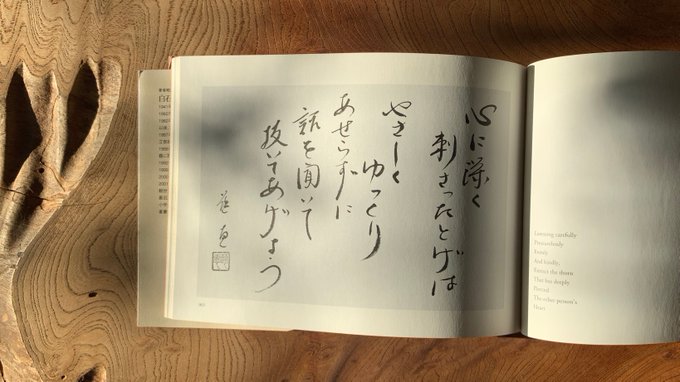 心に深く
刺さったとげは
やさしく
ゆっくり
あせらずに
話を聞いて
抜いてあげよう
Listening carefully
And kindly,
Extract the thorn
That has deeply
Pierced
The other person's
Heart
白石